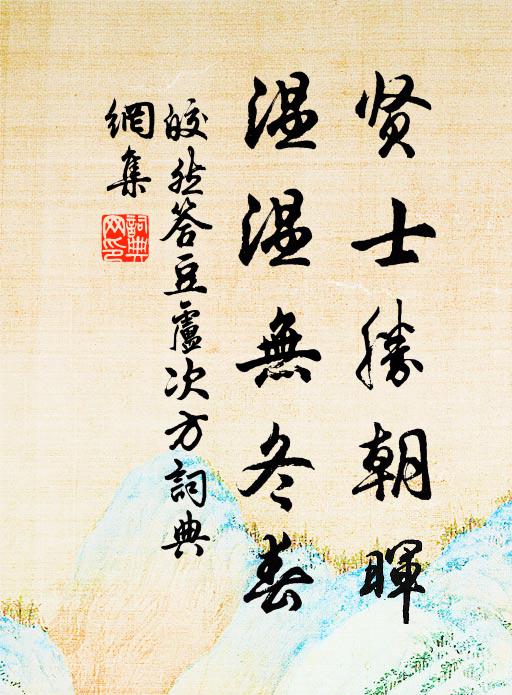 贤士勝朝暉
温温無冬春
皎然答豆盧次方詞典
網集
詞典網印